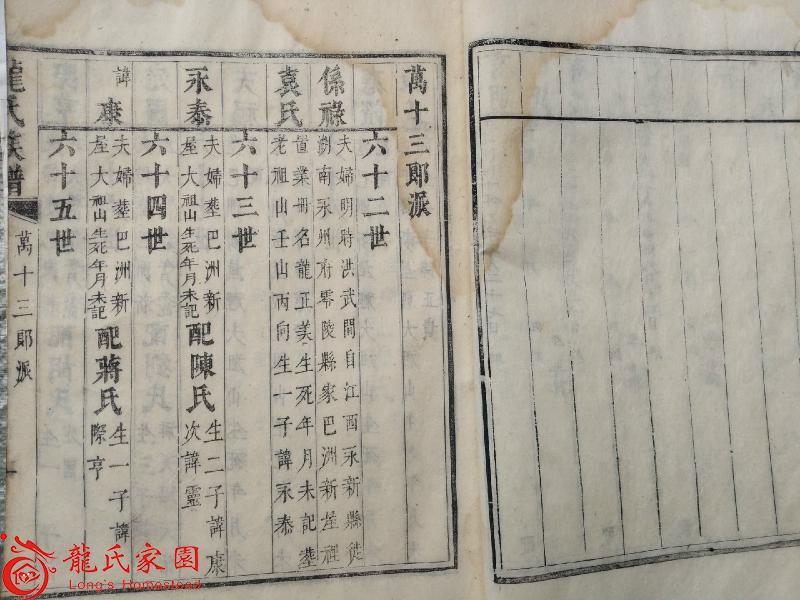 萬十三郎派
六十二世
係祿 夫婦明時洪武間自江西永新縣徙
湖南永州府零陵縣家巴洲新屋祖
袁氏 置業冊名龍正美生死年月未記塟
老祖山壬山丙向生一子諱永泰
六十三世
永泰 夫婦塟巴洲新
屋大祖山生死年月未記
配陳氏 生二子諱康
次諱靈
六十四世
諱康 夫婦塟巴洲新
屋大祖山生死年月未記
配蔣氏 生一子諱
際亨
六十五世
龍氏族譜
萬十三郎派
一
龍氏家園
Long's Homestead